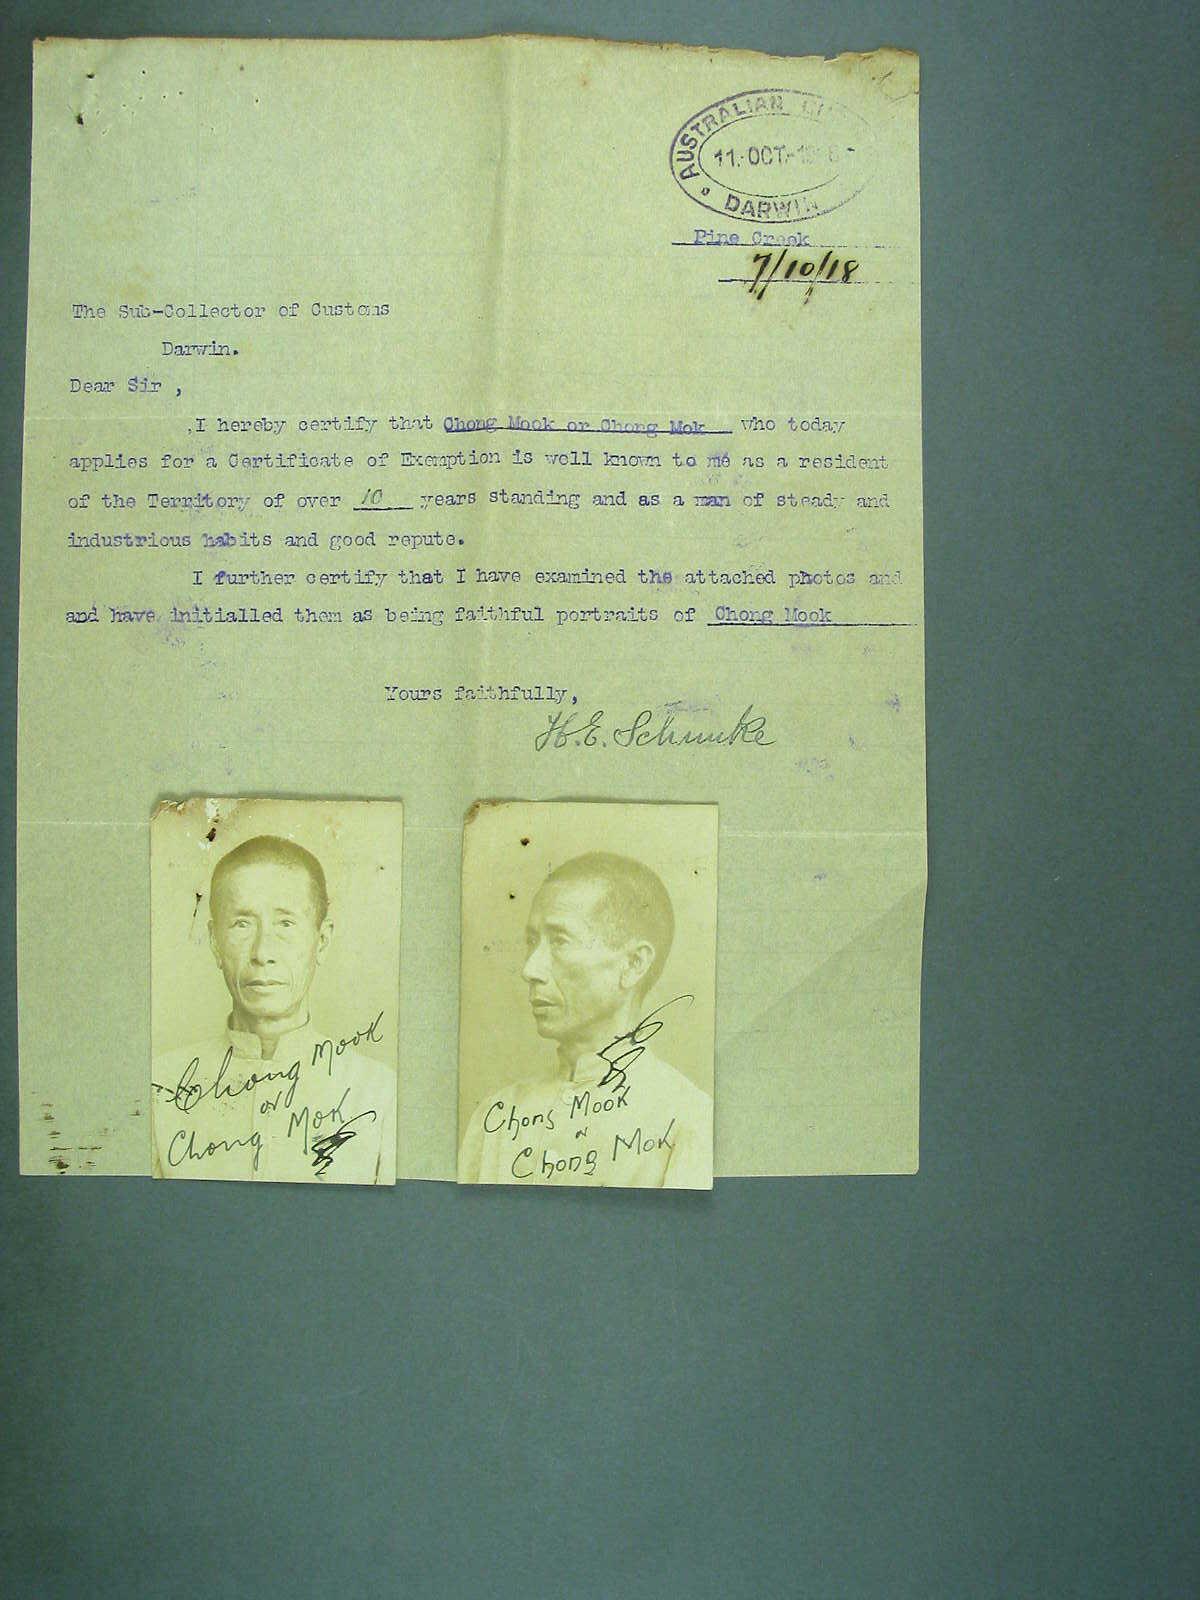 AUSTRALIAN
11.OCT.
DARWIN
Pine Creek
7/10/18
The Sub-Collector of Customs
Darwin.
Dear Sir ,
I hereby certify that Chong Mook or Chong Mok who today
applies for a Certificate of Exemption is well known to me as a resident
of the Territory of over 10 years standing and as a man of steady and
industrious habits and good repute.
I further certify that I have examined the attached photos and
and have initialled them as being faithful portraits of Chong Mook
Yours faithfully,
H.E. Schunke
Chong Mook
or
Chong Mok
Chong Mook
or
Chong Mok